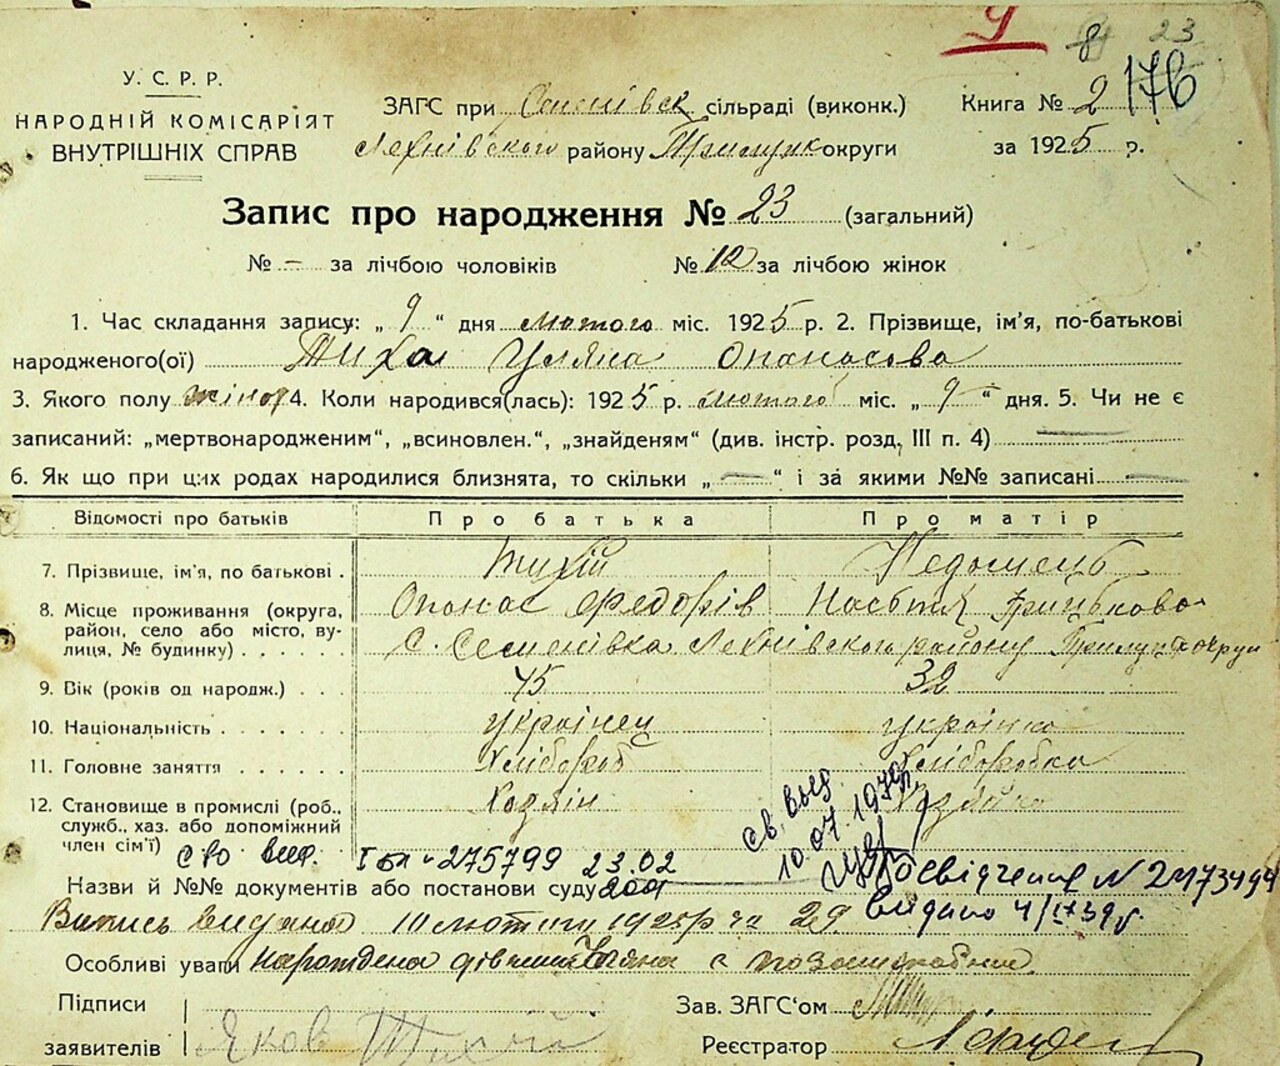 У. С. Р. Р.
НАРОДНІЙ КОМІСАРІЯТ
ВНУТРІШНІХ СПРАВ
8 23
ЗАГС при Семенівск сільраді (виконк.)
Книга № 2 176
Лехнівського району Прилуцк округи
за 1925 р.
Запис про народження № 23 (загальний)
№ – за лічбою чоловіків № 12 за лічбою жінок
1. Час складання запису: „ 9 “ дня лютого міс. 1925 р. 2. Прізвище, ім'я, по-батькові
народженого(ої) Тиха Уляна Опанасова
3. Якого полу жіноч 4. Коли народився(лась): 1925 р. лютого міс. „ 9 “ дня. 5. Чи не є
записаний: „мертвонародженим“, „всиновлен.“, „знайденям“ (див. інстр. розд. III п. 4) —
6. Як що при цих родах народилися близнята, то скільки „ — “ і за якими №№ записані —
Відомості про батьків Про батька Про матір
7. Прізвище, ім'я, по батькові . Тихій
Опанас Федорів Настя Грицькова
8. Місце проживання (округа, район, село або місто, вулиця, № будинку) . . . . . с. Семенівка Лехнівского району Прилуцк округи
9. Вік (років од народж.) . . . 45 32
10. Національність . . . . . . . українец українка
11. Головне заняття . . . . . . Хлібороб Хліборобка
12. Становище в промислі (роб., служб., хаз. або допоміжний член сім'ї) Хозяін
св. выд.
10.07.197
с во выд. 275799 23.02
Назви й №№ документів або постанови суду
Посвідчення N 2473494
видано 4/IX 39 р.
Випись видана 10 лютого 1925 р за 29
Особливі уваги нарождена дівчина Уляна
Підписи
заявителів Яков Тихій
Зав. ЗАГС'ом
Реєстратор